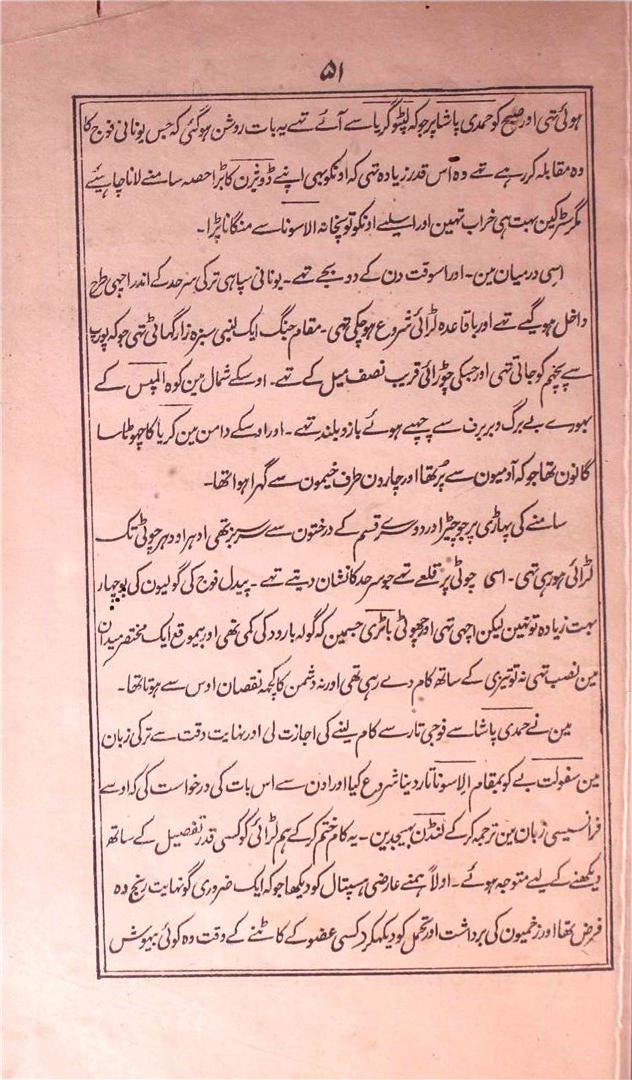 ۵۱
ہوئی تہی اور صبح کو حمدی پاشا پر جو کہ پٹو گریا سے آئے تہے یہ بات روشن ہو گئی کہ جس یونانی فوج کا
وہ مقابلہ کر رہے تہے وہ اس قدر زیادہ تہی کہ اونکو بہی اپنے ڈویژن کا بڑا حصہ سامنے لانا چاہیئے
مگر سڑکین بہت ہی خراب تہین اور اسلیے اونکو توپخانہ الاسونا سے منگانا پڑا۔
اسی درمیان مین۔ اور اسوقت دن کے دو بجے تہے۔ یونانی سپاہی ترکی سرحد کے اندر اچہی طرح
داخل ہو گیے تہے اور باقاعدہ لڑائی شروع ہو چکی تہی۔ مقام جنگ ایک لنبی سبزہ زار گہاٹی تہی جو کہ پورب
سے پچہم کو جاتی تہی اور جسکی چوڑائی قریب نصف میل کے تہے۔ اوسکے شمال مین کوہ المپس کے
بہورے بے برگ و بر برف سے چہپے ہوئے بازو بلند تہے۔ اور اوسکے دامن مین کریا کا چہوٹا سا
گانون تھا جو کہ آدمیون سے پُر تھا اور چارون طرف خیمون سے گہرا ہوا تھا۔
سامنے کی پہاڑی پر جو چیڑ اور دوسرے قسم کے درختون سے سر سبز تھی ادہر اودہر چوٹی تک
لڑائی ہو رہی تہی۔ اسی چوٹی پر قلعے تہے جو سرحد کا نشان دیتے تہے۔ پیدل فوج کی گولیون کی بوچہار
بہت زیادہ تو نہین لیکن اچہی تہی اور چہوٹی باٹری جسمین کہ گولہ بارود کی کمی تھی اور بیموقع ایک مختصر میدان
مین نصب تہی نہ تو تیزی کے ساتھ کام دے رہی تھی اور نہ دشمن کا کچھ نقصان اوس سے ہوتا تھا۔
مین نے حمدی پاشا سے فوجی تار سے کام لینے کی اجازت لی اور نہایت دقت سے ترکی زبان
مین سفولت بے کو بمقام الاسونا تار دینا شروع کیا اور اون سے اس بات کی درخواست کی کہ اوسے
فرانسیسی زبان مین ترجمہ کر کے لنڈن بہیجدین۔ یہ کام ختم کر کے ہم لڑائی کو کسی قدر تفصیل کے ساتھ
دیکھنے کے لیے متوجہ ہوئے۔ اولاً ہمنے عارضی ہسپتال کو دیکھا جو کہ ایک ضروری گو نہایت رنج دہ
فرض تھا اور زخمیون کی برداشت اور تحمل کو دیکہکر کہ کسی عضو کے کاٹنے کے وقت وہ کوئی بیہوش